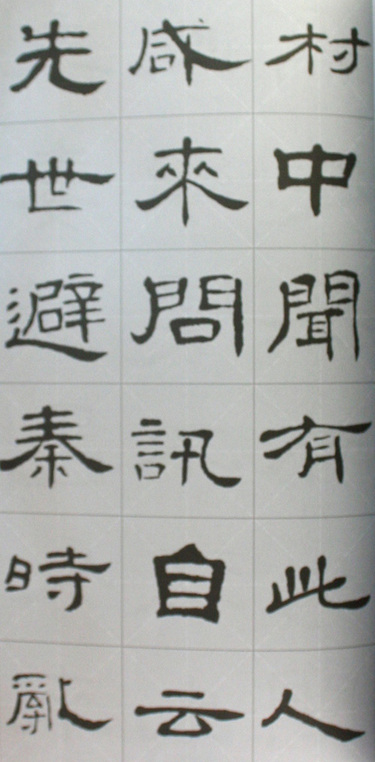 村中聞有此人
咸來問訊自云
先世避秦時亂